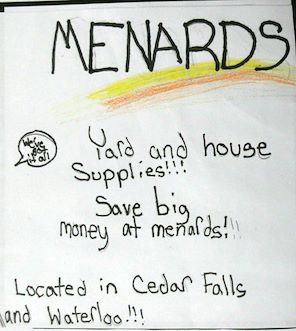 MENARDS
We've
got
it all
Yard and house
Supplies!!!
Save big
money at menards!!!
Located in Cedar Falls
and Waterloo!!!